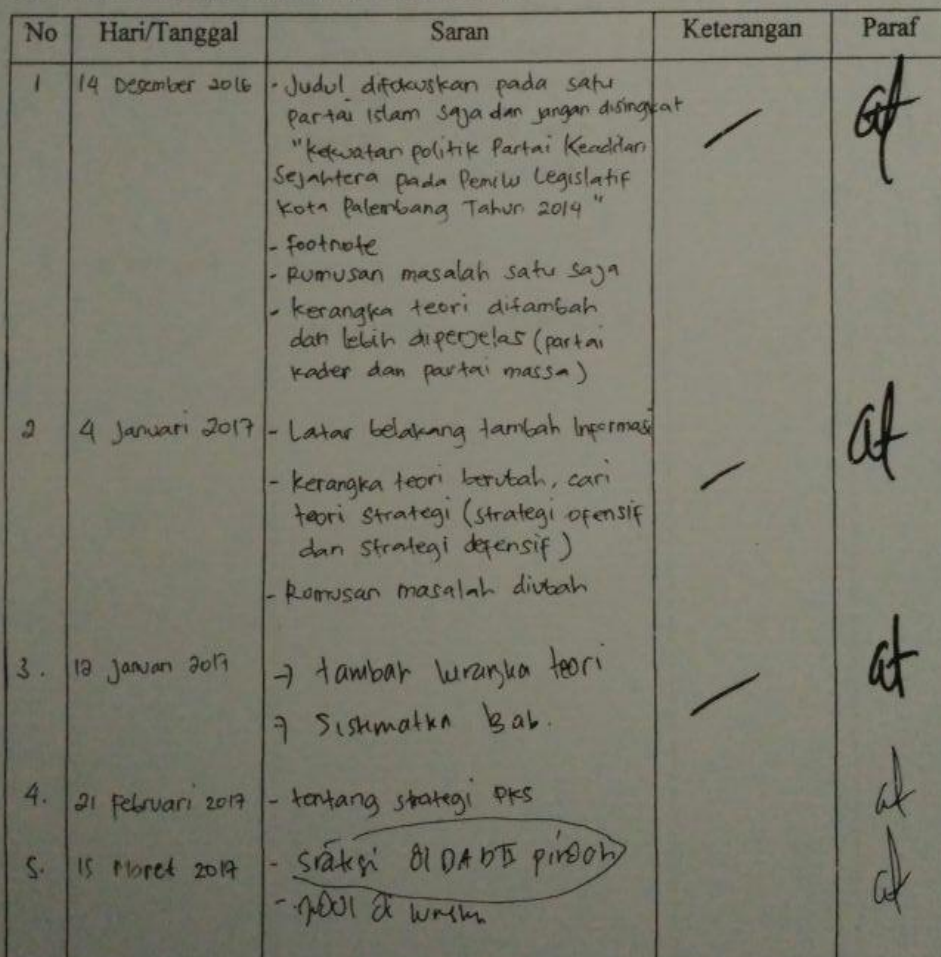 No Hari/Tanggal Saran Keterangan Paraf
1 14 Desember 2016 - Judul difokuskan pada satu
partai Islam saja dan jangan disingkat
"Kekuatan politik Partai Keadilan
Sejahtera pada Pemilu Legislatif
Kota Palembang Tahun 2014"
- footnote
- Rumusan masalah satu saja
- kerangka teori ditambah
dan lebih diperjelas (partai
kader dan partai massa)
2 4 Januari 2017 - Latar belakang tambah Informasi
- kerangka teori berubah, cari
teori strategi (strategi ofensif
dan strategi defensif)
- Rumusan masalah diubah
3. 12 Januari 2017 → tambah kerangka teori
→ Sistematika Bab.
4. 21 Februari 2017 - tentang strategi PKS
5. 15 Maret 2017 - DI BAB II
- di